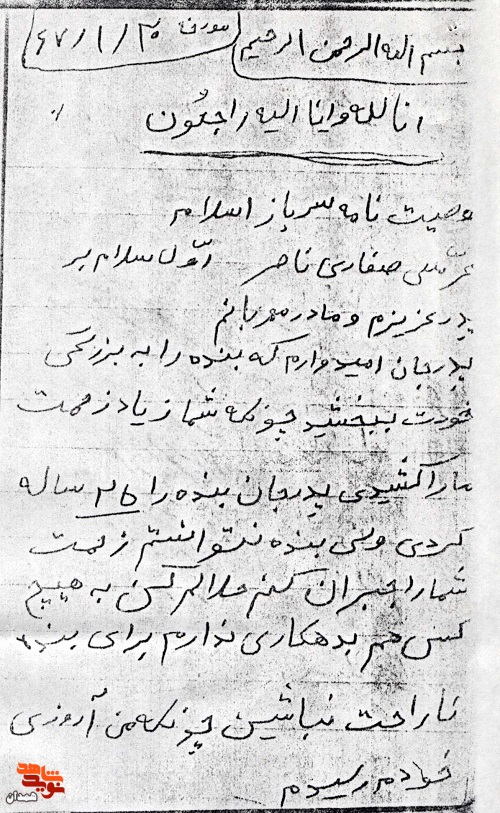 بسم الله الرحمن الرحیم مورخه ۶۷/۱/۳۰
انا لله و انا الیه راجعُون
وصیت نامه سرباز اسلام
صفاری ناصر اوّل سلام بر
پدر عزیزم و مادر مهربانم
پدر جان امیدوارم که بنده را به بزرگی
خودت ببخشید چونکه شما زیاد زحمت
مارا کشیدی پدر جان بنده را ۲۵ ساله
کردی ولی بنده نتوانستم زحمت
شما را جبران کنم حلالم کن به هیچ
کس هم بدهکاری ندارم برای بنده
ناراحت نباشین چونکه من آروزی
خودم رسیدم
نوید شاهد
همدان